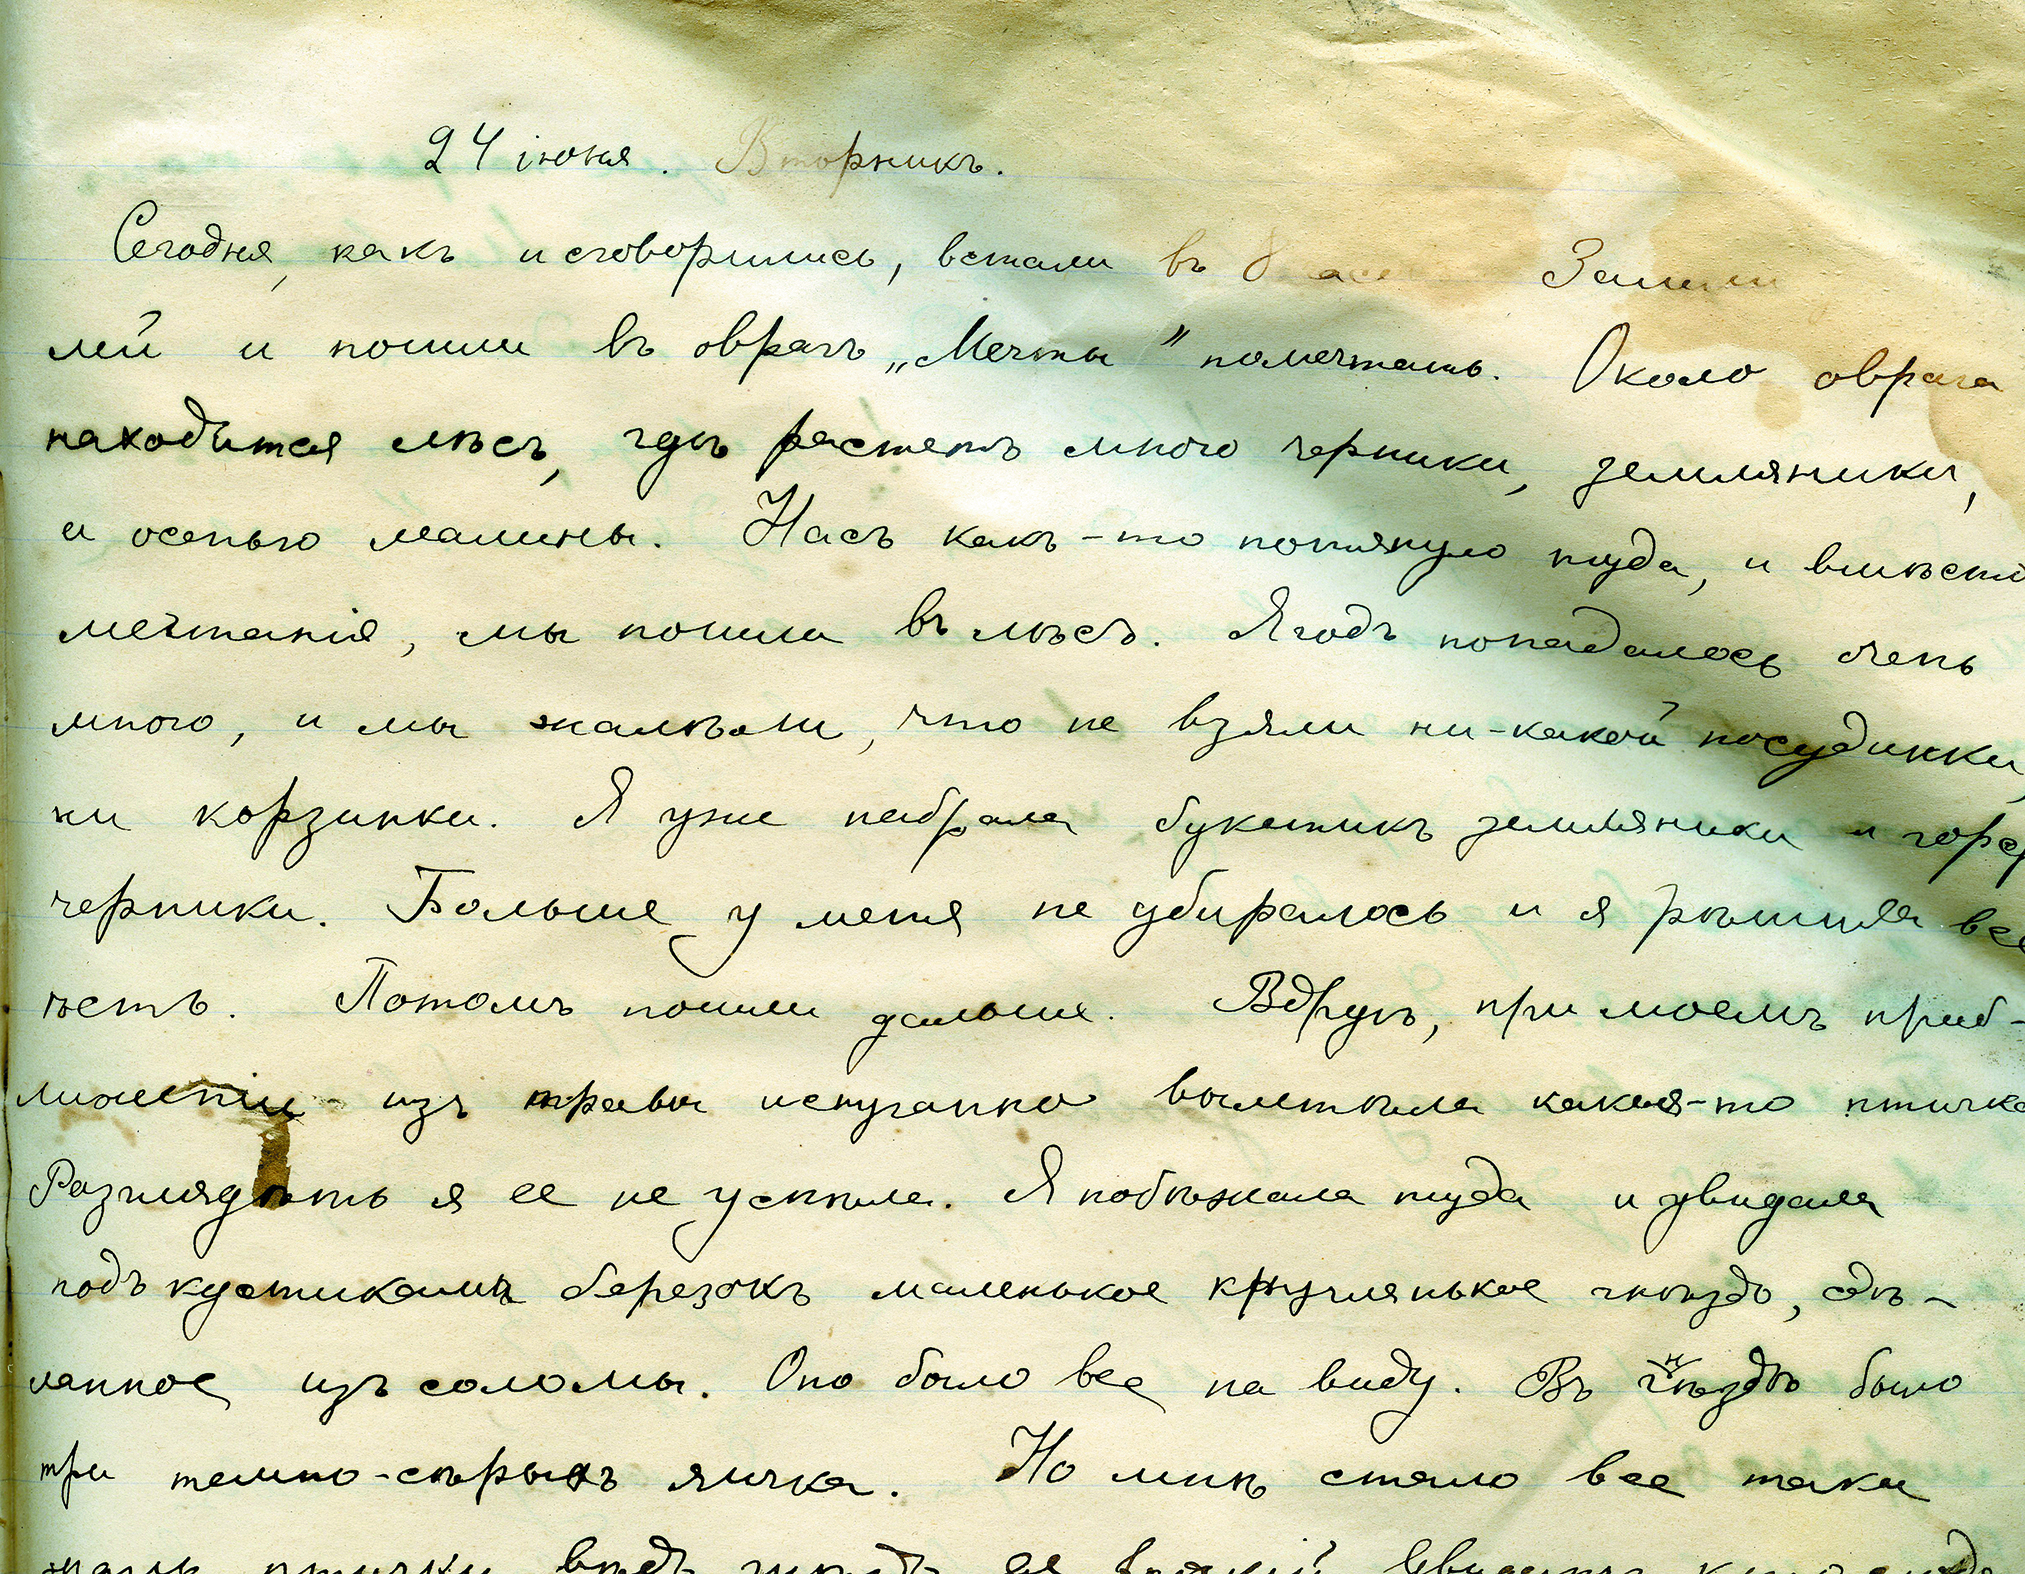 24 іюня. Вторникъ.
Сегодня, какъ и сговорились, встали въ 8
лей и пошли въ оврагъ „Мечты" помечтать. Около оврага
находится лѣсъ, гдѣ растетъ много черники, земляники,
и осенью малины. Насъ какъ-то потянуло туда, и вмѣсто
мечтанія, мы пошли въ лѣсъ. Ягодъ попадалось очень
много, и мы жалѣли, что не взяли ни-какой посудинки,
ни корзинки. Я уже набрала букетикъ земляники и
черники. Больше у меня не убиралось и я рѣшила все
ѣсть. Потомъ пошли дальше. Вдругъ, при моемъ приб-
лиженіи изъ травы испуганно вылетѣла какая-то птичка
Разглядѣть я ее не успѣла. Я побѣжала туда и увидала
подъ кустикомъ березокъ маленькое кругленькое гнѣздо, сдѣ-
ланное изъ соломы. Оно было все на виду. Въ гнѣздѣ было
три темно-сѣрыхъ яичка. Но мнѣ стало все таки
птички, вѣдь гнѣздо